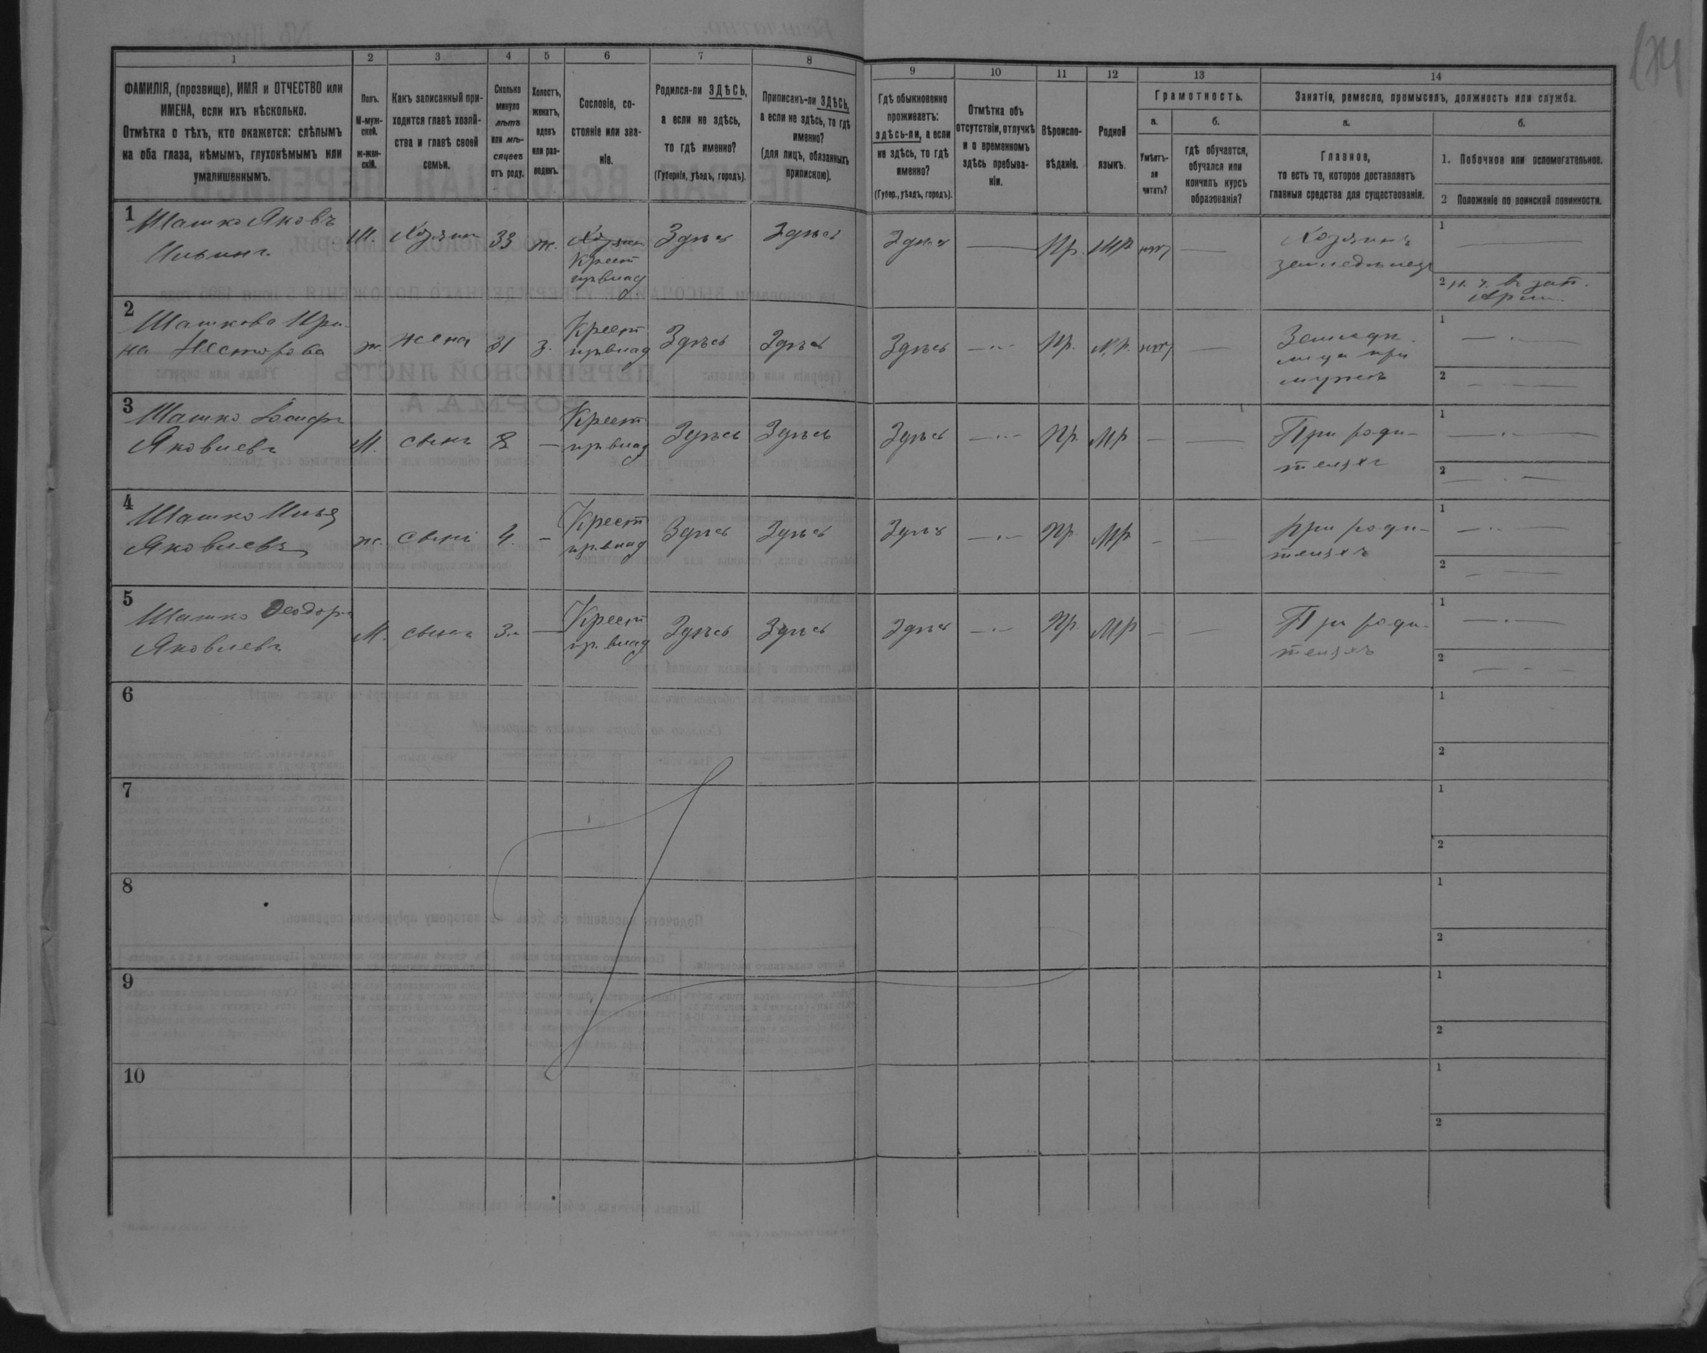 174
1 2 3 4 5 6 7 8 9 10 11 12 13 14
ФАМИЛІЯ, (прозвище), ИМЯ и ОТЧЕСТВО или
ИМЕНА, если ихъ нѣсколько.
Отмѣтка о тѣхъ, кто окажется: слѣпымъ
на оба глаза, нѣмымъ, глухонѣмымъ или
умалишеннымъ.
Полъ.
М-муж-
ской.
ж-жен-
скій.
Какъ записанный при-
ходится главѣ хозяй-
ства и главѣ своей
семьи.
Сколько
минуло
лѣтъ
или мѣ-
сяцевъ
отъ роду.
Холостъ,
женатъ,
вдовъ
или раз-
веденъ.
Сословіе, со-
стояніе или зва-
ніе.
Родился-ли ЗДѢСЬ,
а если не здѣсь,
то гдѣ именно?
(Губернія, уѣздъ, городъ).
Приписанъ-ли ЗДѢСЬ,
а если не здѣсь, то гдѣ
именно?
(для лицъ, обязанныхъ
припискою).
Гдѣ обыкновенно
проживаетъ:
здѣсь-ли, а если
не здѣсь, то гдѣ
именно?
(Губер., уѣздъ, городъ).
Отмѣтка объ
отсутствіи, отлучкѣ
и о временномъ
здѣсь пребыва-
ніи.
Вѣроиспо-
вѣданіе.
Родной
языкъ.
Грамотность.
а.
Умѣетъ-
ли
читать?
б.
гдѣ обучается,
обучался или
кончилъ курсъ
образованія?
Занятіе, ремесло, промыселъ, должность или служба.
а.
Главное,
то есть то, которое доставляетъ
главныя средства для существованія.
б.
1. Побочное или вспомогательное.
2 Положеніе по воинской повинности.
1
Шашко Яковъ
Ильинъ
М. Хозяин 33 ж. Хозяин
Крест
ир.влад
Здѣсь Здѣсь Здѣсь — Пр. МР нѣт —
Хозяинъ
земледѣлецъ
1 —
2
2
Шашкова Ири-
на Несторова
ж. жена 31 з. Крест
ир.влад
Здѣсь Здѣсь Здѣсь — Пр. М.Р. нѣт —
1 —
2 —
3
Шашко Іосифъ
Яковлевъ
М. сынъ 8 — Крест
ир.влад
Здѣсь Здѣсь Здѣсь — Пр. МР — —
При роди-
теляхъ
1 —
2 —
4
Шашко Илья
Яковлевъ
ж. сынъ 4 — Крест
ир.влад
Здѣсь Здѣсь Здѣсь — Пр. МР — —
При роди-
теляхъ
1 —
2 —
5
Шашко Ѳеодоръ
Яковлевъ
М. сынъ 3 — Крест
ир.влад
Здѣсь Здѣсь Здѣсь — Пр. МР — —
При роди-
теляхъ
1 —
2 —
6
1
2
7
1
2
8
1
2
9
1
2
10
1
2